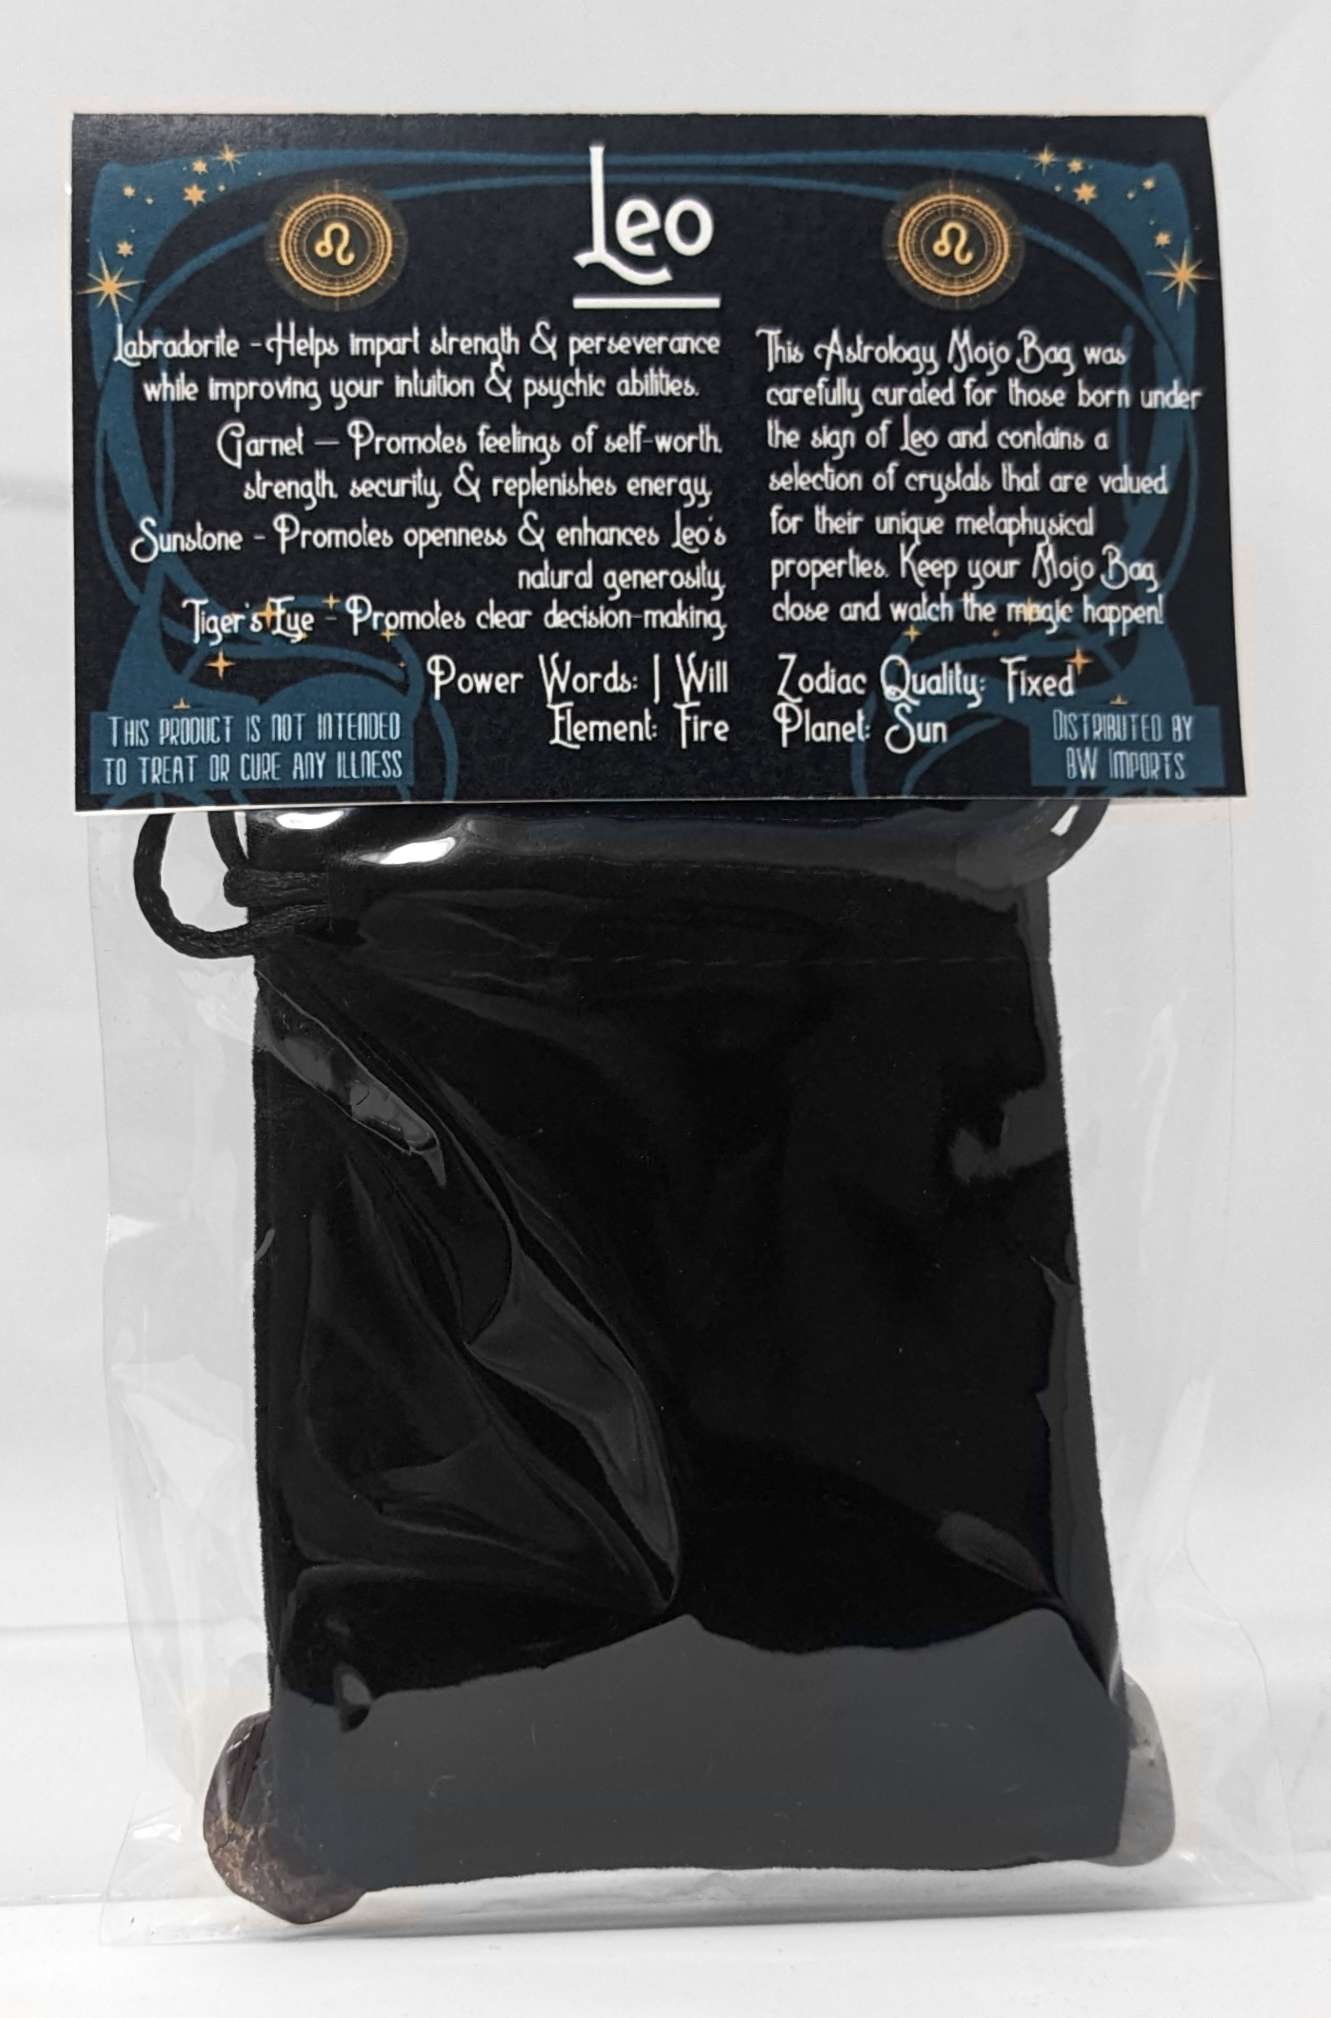 Leo
Labradorite - Helps impart strength & perseverance
while improving your intuition & psychic abilities.
Garnet — Promotes feelings of self-worth,
strength, security, & replenishes energy.
Sunstone - Promotes openness & enhances Leo's
natural generosity.
Tiger's Eye - Promotes clear decision-making.
Power Words: I Will
Element: Fire
This Astrology Mojo Bag was
carefully curated for those born under
the sign of Leo and contains a
selection of crystals that are valued
for their unique metaphysical
properties. Keep your Mojo Bag
close and watch the magic happen!
Zodiac Quality: Fixed
Planet: Sun
THIS PRODUCT IS NOT INTENDED
TO TREAT OR CURE ANY ILLNESS
DISTRIBUTED BY
BW IMPORTS